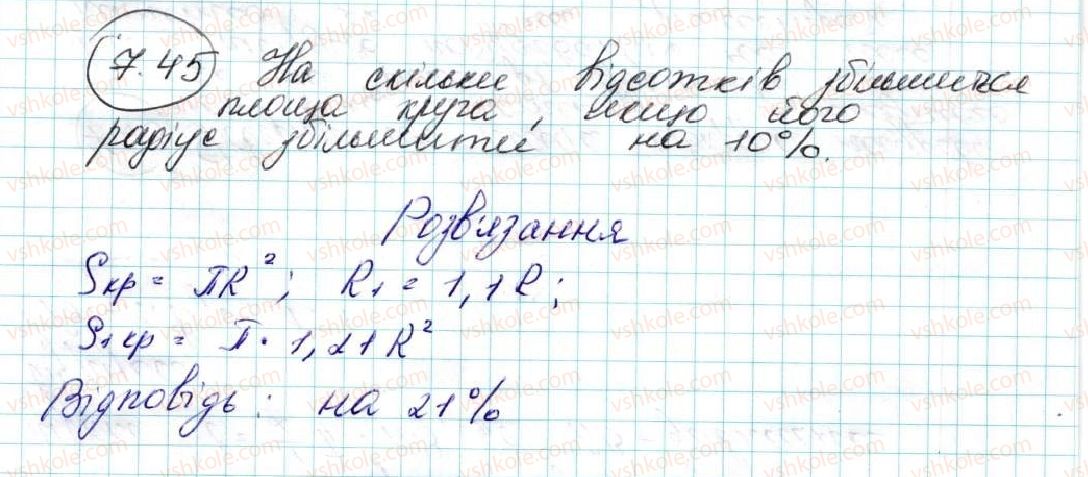 7.45 На скільки відсотків збільшиться
площа круга, якщо його
радіус збільшити на 10%.
Розв'язання
Sкр = πR²; R₁ = 1,1R;
S₁кр = π · 1,21R²
Відповідь: на 21%